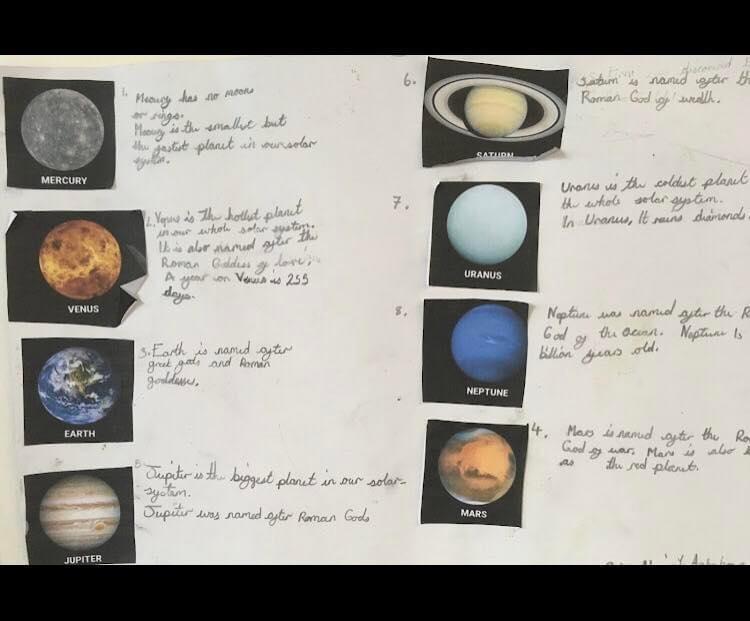 1. Mecury has no moons
or rings.
Mecury is the smallest but
the fastest planet in our solar
system.
MERCURY
2. Venus is the hottest planet
in our whole solar system.
It is also named after the
Roman Goddess of love.
A year on Venus is 255
days.
VENUS
3. Earth is named after
greet gods and Roman
goddesses.
EARTH
5. Jupiter is the biggest planet in our solar-
system.
Jupiter was named after Roman Gods
JUPITER
6. Saturn is named after
Roman God of wealth.
SATURN
7. Uranus is the coldest planet
the whole solar system.
In Uranus, It rains diamonds.
URANUS
8. Neptune was named after the
God of the Ocean. Neptune is
billion years old.
NEPTUNE
4. Mars is named after the
God of war. Mars is also
as the red planet.
MARS